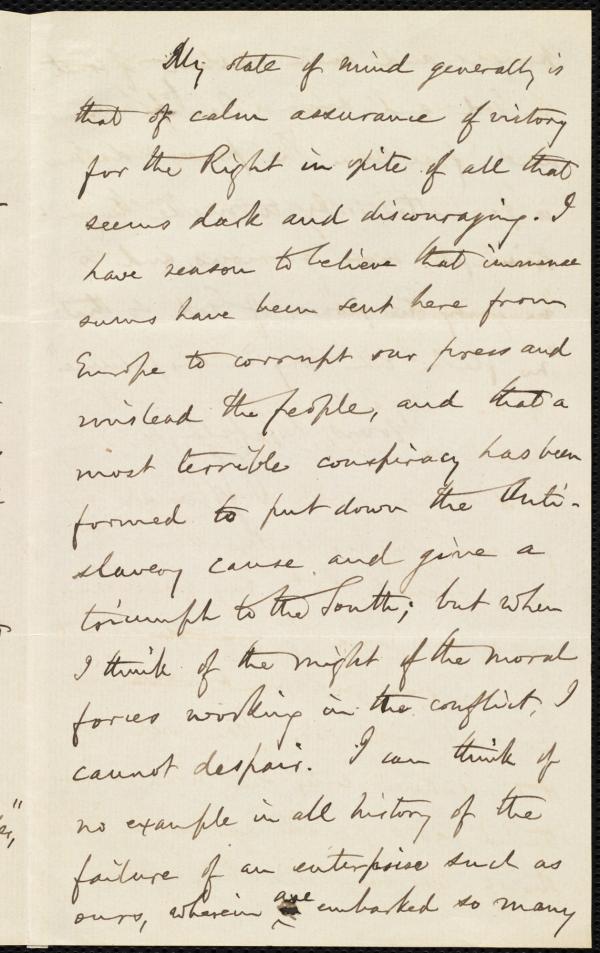 My state of mind generally is
that of calm assurance of victory
for the Right in spite of all that
seems dark and discouraging. I
have reason to believe that immense
sums have been sent here from
Europe to corrupt our press and
mislead the people, and that a
most terrible conspiracy has been
formed to put down the Anti-
slavery cause and give a
triumph to the South; but when
I think of the might of the moral
forces working in the conflict, I
cannot despair. I can think of
no example in all history of the
failure of an enterprise such as
ours, wherein are embarked so many